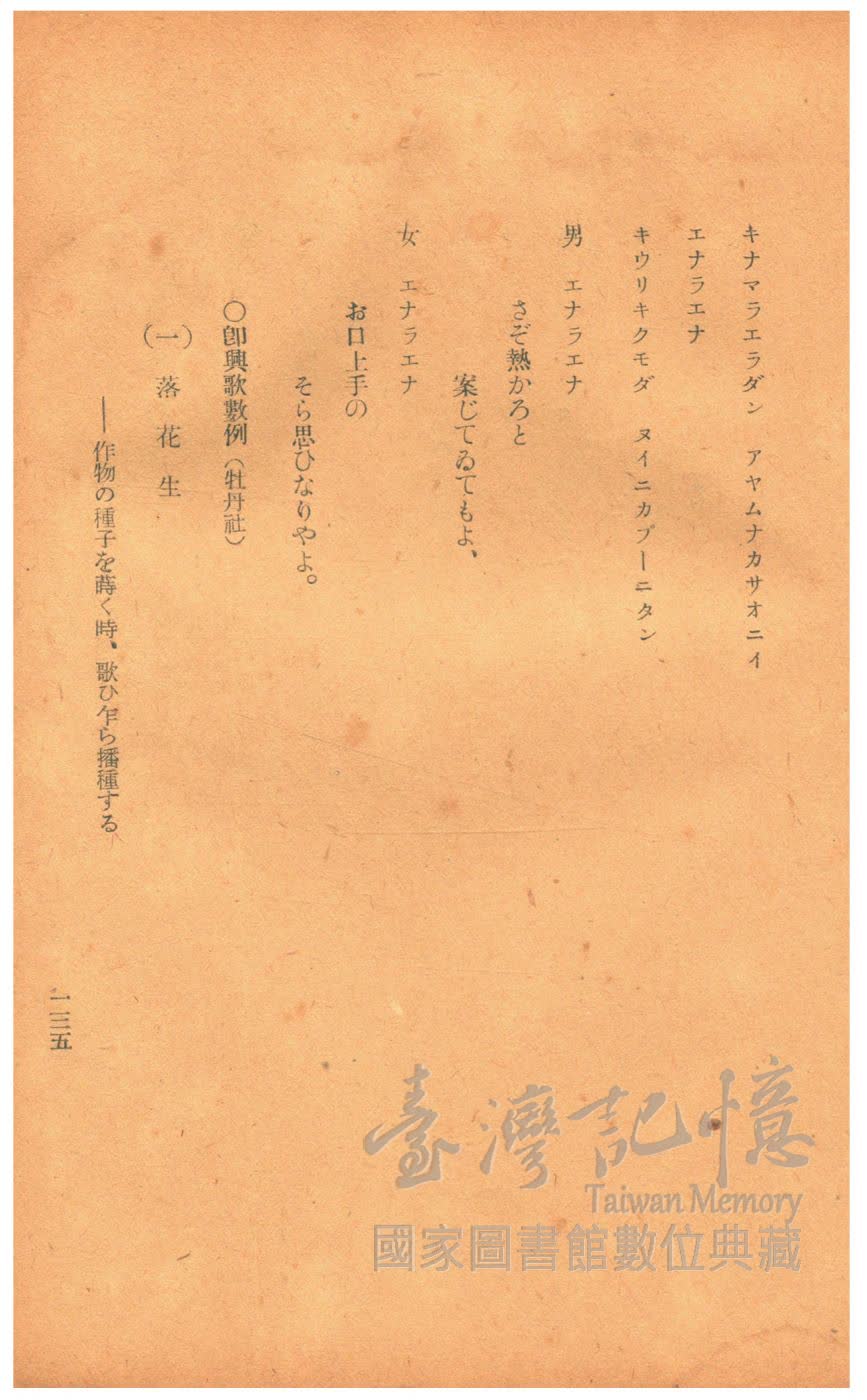 キナマラエラダン　アヤムナカサオニイ
エナラエナ
キウリキクモダ　ヌイニカプーニタン
男　エナラエナ
さぞ熱かろと
案じてゐてもよ、
女　エナラエナ
お口上手の
そら思ひなりやよ。
〇卽興歌數例（牡丹社）
（一）落花生
――作物の種子を蒔く時、歌ひ乍ら播種する
一三五
臺灣記憶
Taiwan Memory
國家圖書館數位典藏